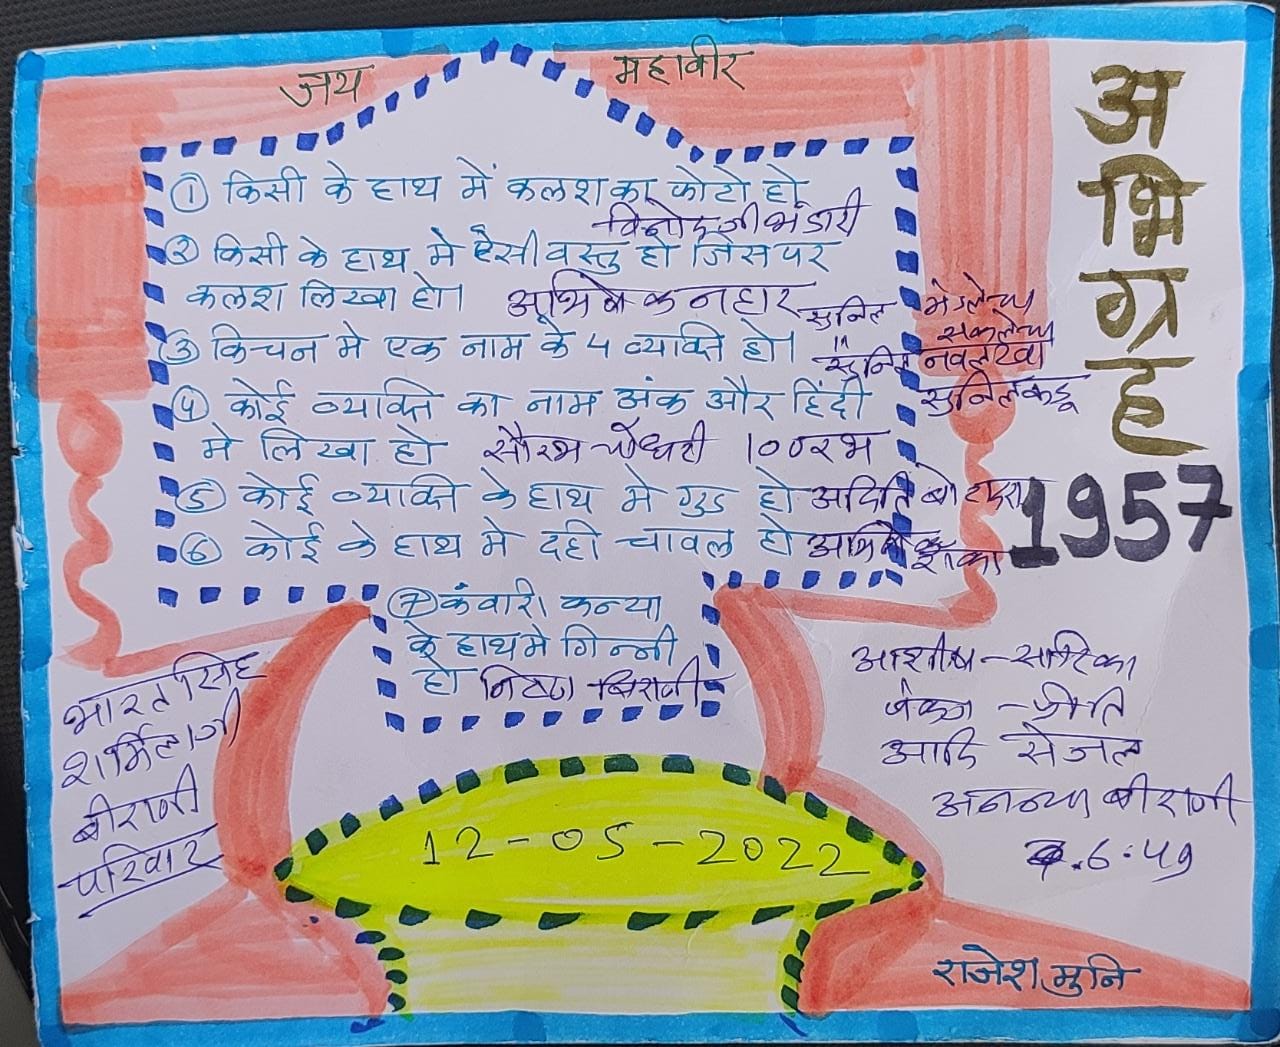 जय महावीर
अभिग्रह
1957
① किसी के हाथ में कलश का फोटो हो
विनोदजी भंडारी
② किसी के हाथ मे ऐसी वस्तु हो जिसपर
कलश लिखा हो। अभिषेक नहार
③ किचन मे एक नाम के 4 व्यक्ति हो।
सुनिल
सुनिल नवलखा
सुनिल कडू
④ कोई व्यक्ति का नाम अंक और हिंदी
मे लिखा हो सौरभ चौधरी 100रभ
⑤ कोई व्यक्ति के हाथ मे गुड हो अदिति
⑥ कोई के हाथ मे दही चावल हो
⑦ कंवारी कन्या
के हाथ मे गिन्नी
हो
भारतसिंह
शर्मिलाजी
बीराणी
परिवार
आशीष -
- प्रीति
आदि सेजल
अनन्या बीराणी
6:49
12-05-2022
राजेश मुनि